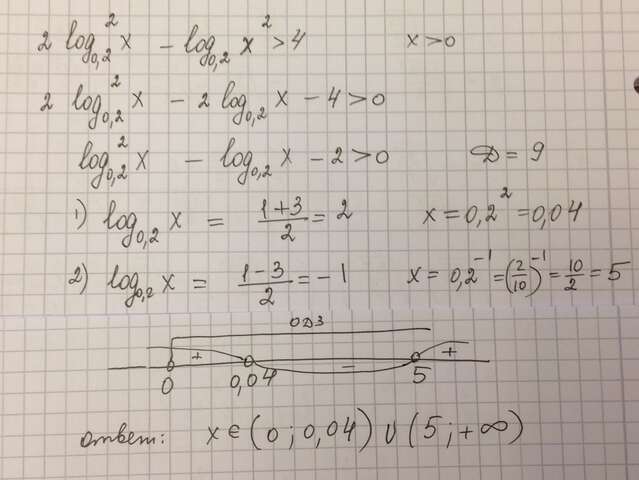 2 log²₀,₂ x − log₀,₂ x² > 4 x > 0
2 log²₀,₂ x − 2 log₀,₂ x − 4 > 0
log²₀,₂ x − log₀,₂ x − 2 > 0 D = 9
1) log₀,₂ x = (1+3)/2 = 2 x = 0,2² = 0,04
2) log₀,₂ x = (1−3)/2 = −1 x = 0,2⁻¹ = (2/10)⁻¹ = 10/2 = 5
ОДЗ
+ − +
0 0,04 5
ответ: x ∈ (0 ; 0,04) ∪ (5 ; +∞)